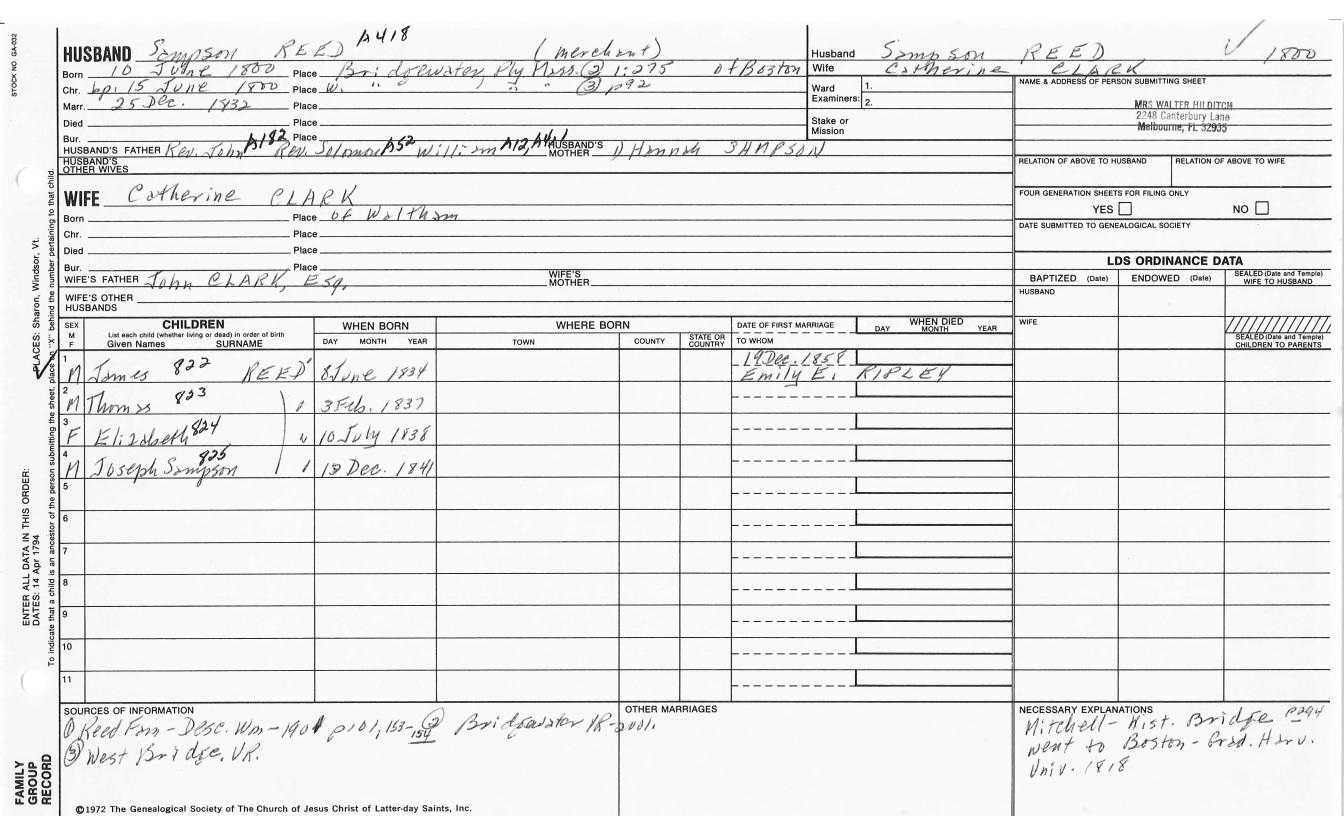 STOCK NO. GA-032
HUSBAND Sampson REED A418 (merchant)
Born 10 June 1800 Place Bridgewater, Ply Mass. ② 1:275 of Boston
Chr. bp. 15 June 1800 Place W. " " " ③ p92
Marr. 25 Dec. 1832 Place
Died Place
Bur. Place
HUSBAND'S FATHER Rev. John A182 Rev. Solomon A52 William A12, A4, 1 HUSBAND'S MOTHER Hannah SAMPSON
HUSBAND'S OTHER WIVES
WIFE Catherine CLARK
Born Place of Waltham
Chr. Place
Died Place
Bur. Place
WIFE'S FATHER John CLARK, Esq. WIFE'S MOTHER
WIFE'S OTHER HUSBANDS
Husband Sampson REED 1800
Wife Catherine CLARK
Ward 1.
Examiners: 2.
Stake or
Mission
NAME & ADDRESS OF PERSON SUBMITTING SHEET
MRS WALTER HILDITCH
2248 Canterbury Lane
Melbourne, FL 32935
RELATION OF ABOVE TO HUSBAND RELATION OF ABOVE TO WIFE
FOUR GENERATION SHEETS FOR FILING ONLY
YES NO
DATE SUBMITTED TO GENEALOGICAL SOCIETY
LDS ORDINANCE DATA
BAPTIZED (Date) ENDOWED (Date) SEALED (Date and Temple) WIFE TO HUSBAND
HUSBAND
WIFE
SEALED (Date and Temple) CHILDREN TO PARENTS
SEX M F CHILDREN List each child (whether living or dead) in order of birth Given Names SURNAME
WHEN BORN DAY MONTH YEAR
WHERE BORN TOWN COUNTY STATE OR COUNTRY
DATE OF FIRST MARRIAGE TO WHOM
WHEN DIED DAY MONTH YEAR
1 M James 822 REED 8 June 1834 19 Dec. 1858
Emily E. RIPLEY
2 M Thomas 823 " 3 Feb. 1837
3 F Elizabeth 824 " 10 July 1838
4 M Joseph Sampson 825 " 13 Dec. 1841
5
6
7
8
9
10
11
SOURCES OF INFORMATION
① Reed Fam - Desc. Wm - 1901 p101, 153-154 ② Bridgewater VR-2vol.
③ West Bridge. VR.
OTHER MARRIAGES
NECESSARY EXPLANATIONS
Mitchell - Hist. Bridge p294
went to Boston - Grad. Harv.
Univ. 1818
©1972 The Genealogical Society of The Church of Jesus Christ of Latter-day Saints, Inc.
FAMILY
GROUP
RECORD
ENTER ALL DATA IN THIS ORDER:
DATES: 14 Apr 1794
PLACES: Sharon, Windsor, Vt.
To indicate that a child is an ancestor of the person submitting the sheet, place an "X" behind the number pertaining to that child.